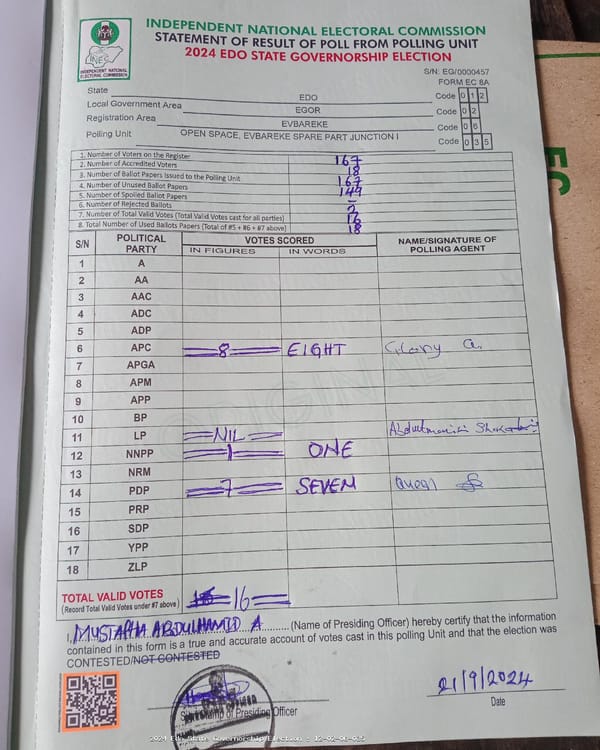 INDEPENDENT NATIONAL ELECTORAL COMMISSION
STATEMENT OF RESULT OF POLL FROM POLLING UNIT
2024 EDO STATE GOVERNORSHIP ELECTION
INDEPENDENT NATIONAL
ELECTORAL COMMISSION
S/N: EG/0000457
FORM EC 8A
State EDO Code 0 1 2
Local Government Area EGOR Code 0 2
Registration Area EVBAREKE Code 0 6
Polling Unit OPEN SPACE, EVBAREKE SPARE PART JUNCTION I Code 0 3 5
1. Number of Voters on the Register 167
2. Number of Accredited Voters 18
3. Number of Ballot Papers Issued to the Polling Unit 167
4. Number of Unused Ballot Papers 149
5. Number of Spoiled Ballot Papers –
6. Number of Rejected Ballots 2
7. Number of Total Valid Votes (Total Valid Votes cast for all parties) 16
8. Total Number of Used Ballots Papers (Total of #5 + #6 + #7 above) 18
S/N POLITICAL PARTY VOTES SCORED NAME/SIGNATURE OF POLLING AGENT
IN FIGURES IN WORDS
1 A
2 AA
3 AAC
4 ADC
5 ADP
6 APC 8 EIGHT Glory a.
7 APGA
8 APM
9 APP
10 BP
11 LP NIL
12 NNPP 1 ONE
13 NRM
14 PDP 7 SEVEN
15 PRP
16 SDP
17 YPP
18 ZLP
TOTAL VALID VOTES
(Record Total Valid Votes under #7 above) 16
I, MUSTAPHA ABDULHAMID A (Name of Presiding Officer) hereby certify that the information
contained in this form is a true and accurate account of votes cast in this polling Unit and that the election was
CONTESTED/NOT CONTESTED
of Presiding Officer
21/9/2024
Date
2024 Edo State Governorship Election